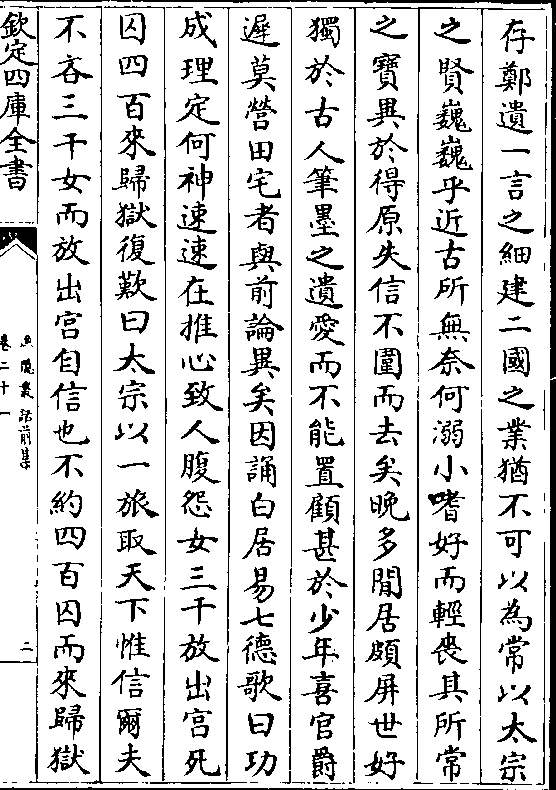 存鄭遺一言之細建二國之業猶不可以為常以太宗
之賢巍巍乎近古所無奈何溺小嗜好而輕喪其所常
之寶異於得原失信不圍而去矣晚多閒居頗屏世好
獨於古人筆墨之遺愛而不能置顧甚於少年喜官爵
遲莫營田宅者與前論異矣因誦白居易七德歌曰功
成理定何神速速在推心致人腹怨女三千放出宮死
囚四百來歸獄復歎曰太宗以一旅取天下惟信爾夫
不吝三千女而放出宮自信也不約四百囚而來歸獄
欽定四庫全書
漁隱叢話前集
卷二十一
二